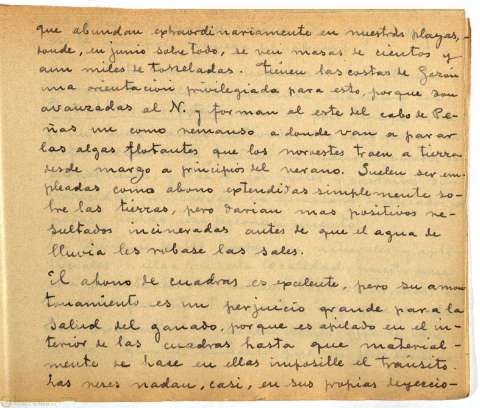 que abundan extraordinariamente en nuestras playas,
donde, en junio sobre todo, se ven masas de cientos y
aun miles de toneladas. Tienen las costas de Gozón
una orientación privilegiada para esto, porque son
avanzadas al N. y forman al este del cabo de Pe-
ñas un como remanso a donde van a parar
las algas flotantes que los noroestes traen a tierra
desde marzo a principios del verano. Suelen ser em-
pleadas como abono extendidas simplemente so-
bre las tierras, pero darian mas positivos re-
sultados incineradas antes de que el agua de
lluvia les robase las sales.
El abono de cuadras es excelente, pero su amon-
tonamiento es un perjuicio grande para la
salud del ganado, porque es apilado en el in-
terior de las cuadras hasta que material-
mente se hace en ellas imposible el tránsito.
Las reses nadan, casi, en sus propias deyeccio-